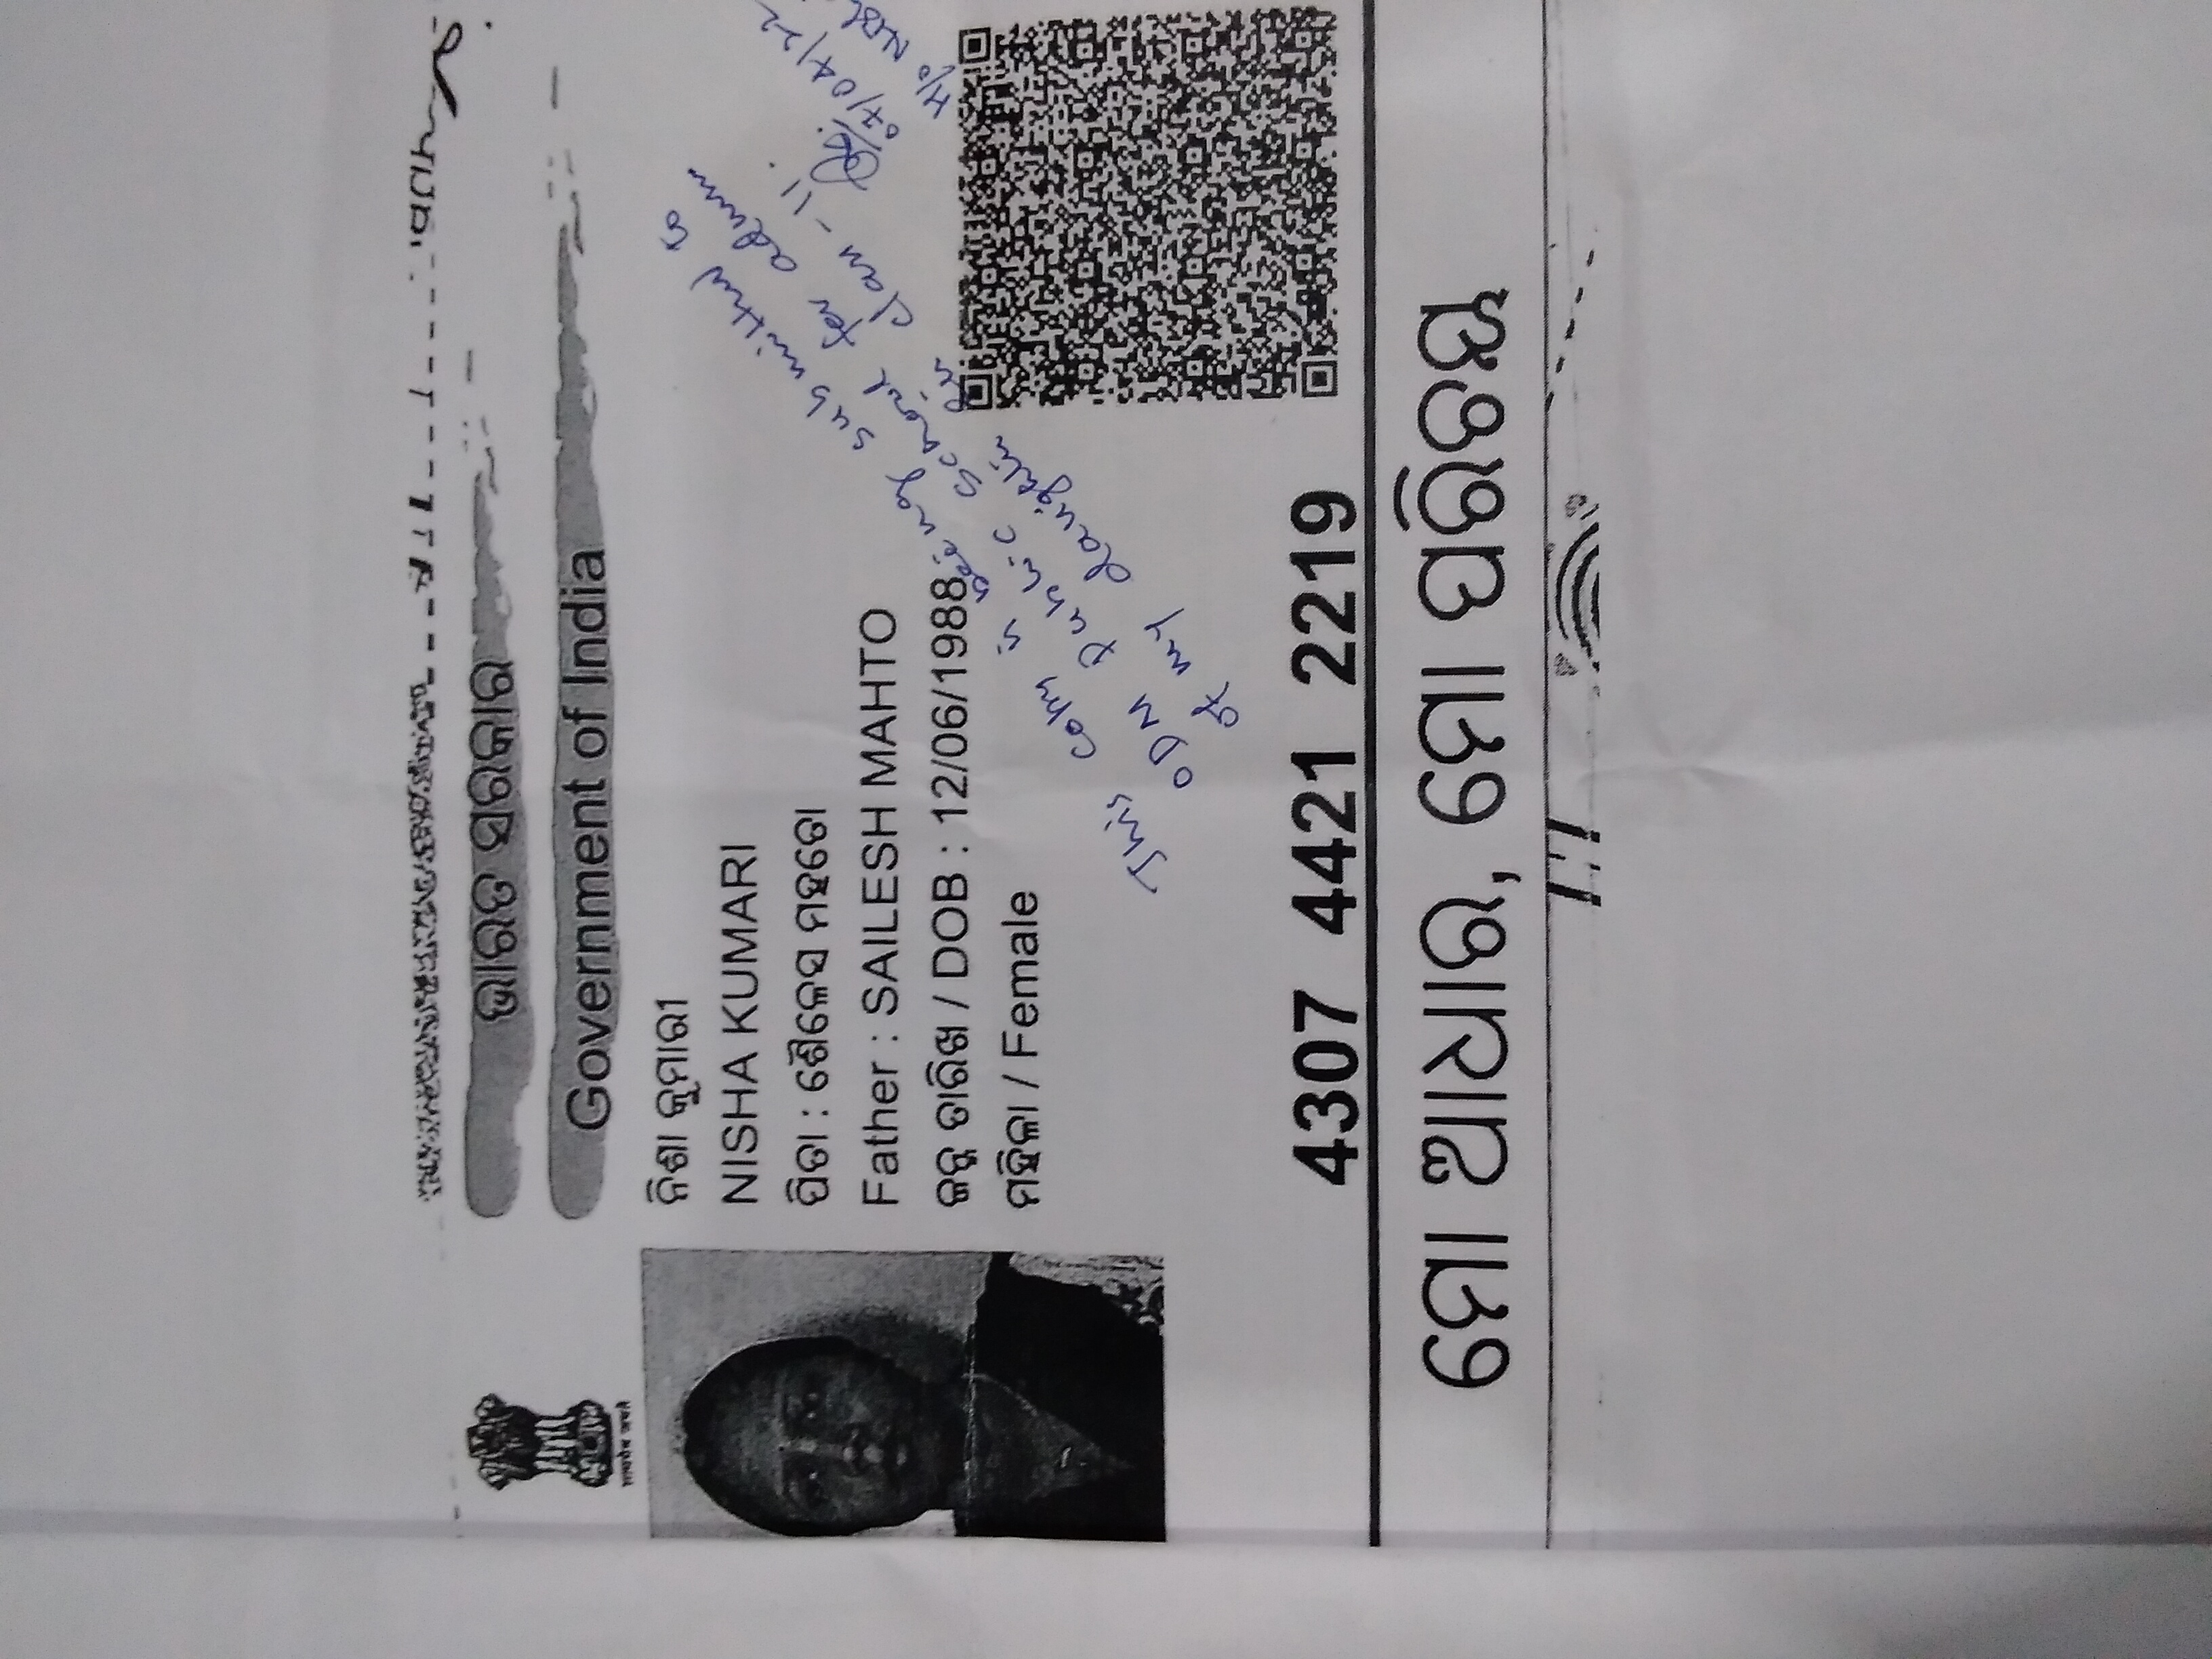 ଭାରତ ସରକାର
Government of India
ନିଶା କୁମାରୀ
NISHA KUMARI
ପିତା : ଶୈଳେସ ମହତୋ
Father : SAILESH MAHTO
ଜନ୍ମ ତାରିଖ / DOB : 12/06/1988
ମହିଳା / Female
This copy is being submitted to
ODM Public School for admn
of my daughter in class - II.
07/04/22
4307 4421 2219
ମୋ ଆଧାର, ମୋ ପରିଚୟ